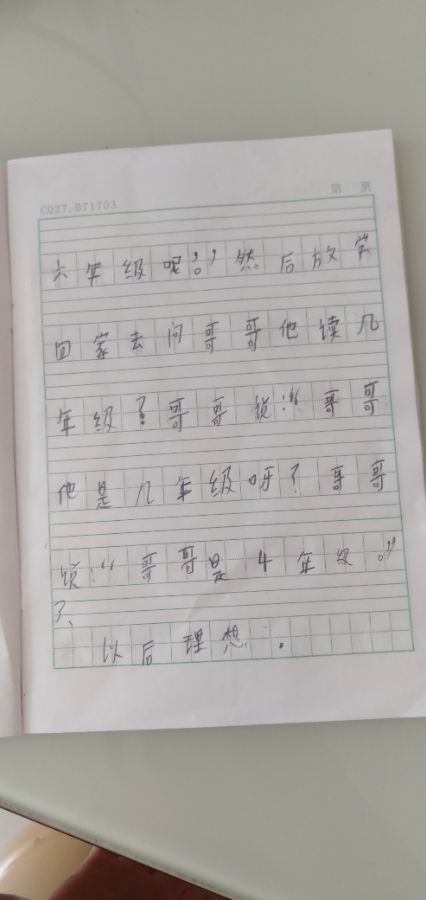 CQ27.071703
第 页
六年级呢。”然后放学
回家去问哥哥他读几
年级？哥哥 :“哥哥
他是几年级呀？哥哥
:“哥哥是4年级。”
3、
以后理想.